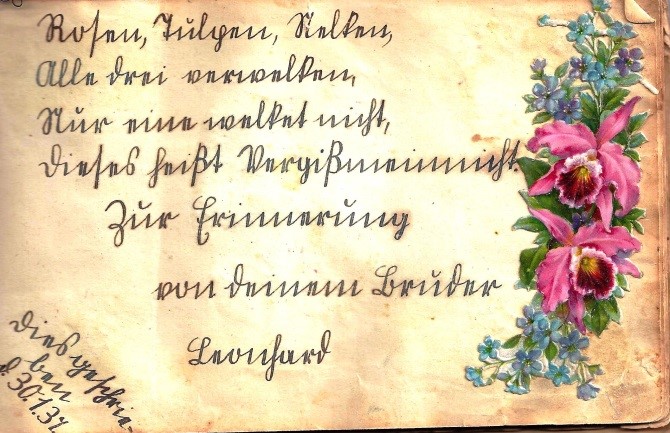 Rosen, Tulpen, Nelken,
Alle drei verwelken,
Nur eine welket nicht,
dieses heißt Vergißmeinnicht.
Zur Erinnerung
von deinem Bruder
Leonhard
Dies geschrie-
ben
d. 30.1.37